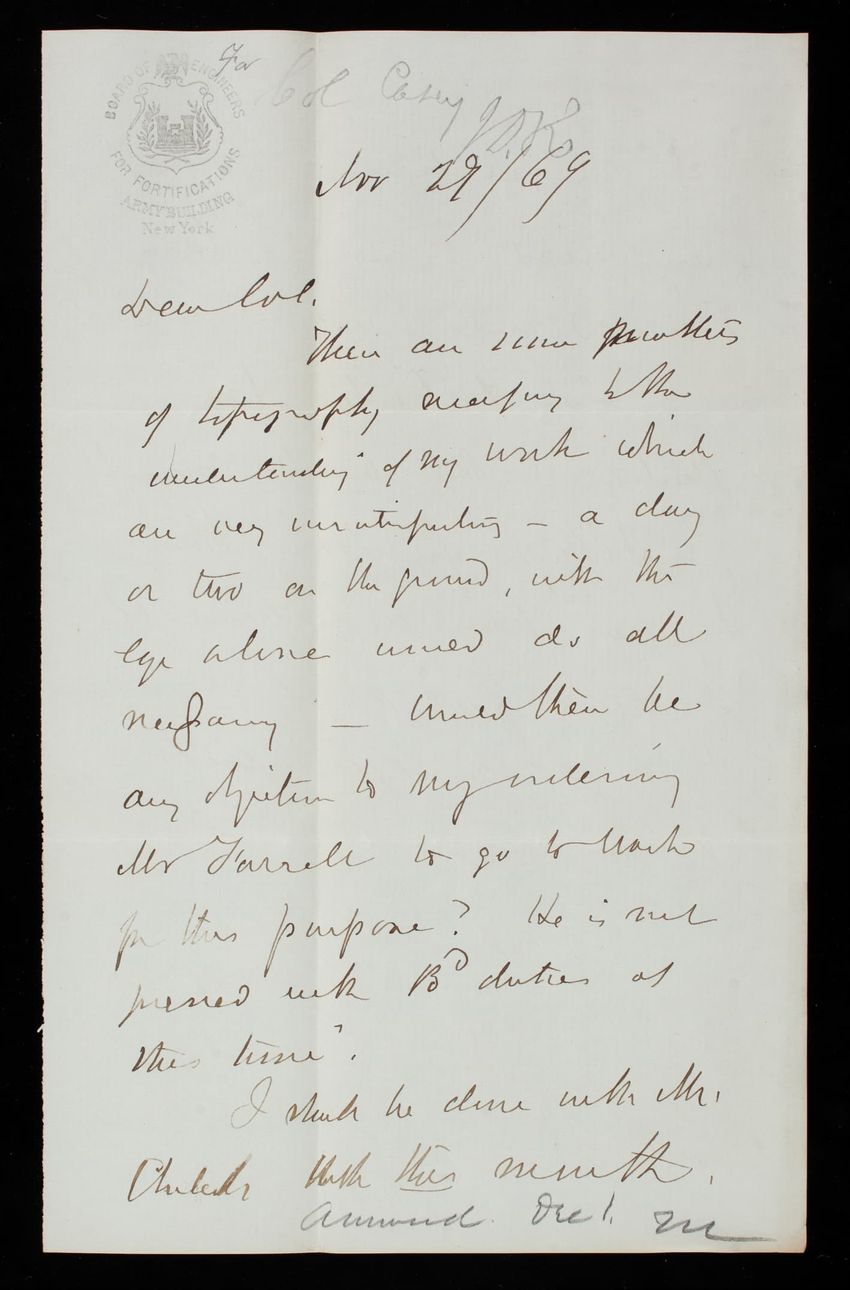 BOARD OF ENGINEERS
FOR FORTIFICATIONS
ARMY BUILDING
New York
For
Col Casey
Nov 29/69
Dear Col.
There are some matters
of topography necessary to the
understanding of my work which
are very unsatisfactory – a day
or two on the ground, with the
eye alone would do all
necessary – Would there be
any objection to my ordering
Mr Farrell to go to work
for this purpose? He is not
pressed with Bd duties at
this time.
I shall be done with Mr.
with this month.
Answered. Dec 1.